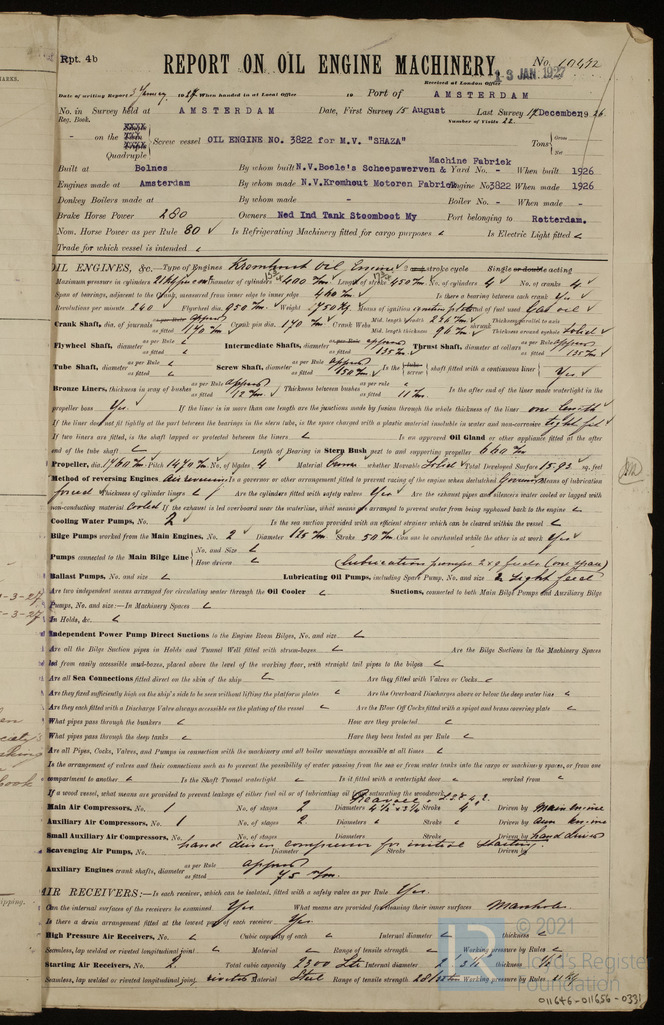 Rpt. 4b
REPORT ON OIL ENGINE MACHINERY.
No. 10442
13 JAN. 1927
Received at London Office
Date of writing Report 19 27. When handed in at Local Office 19 Port of AMSTERDAM
No. in Survey held at AMSTERDAM Date, First Survey 15 August Last Survey 17 December, 1926
Reg. Book. Number of Visits 22.
- on the Single Twin Triple Quadruple Screw vessel OIL ENGINE NO. 3822 for M.V. "SHAZA" Tons Gross Net
Built at Bolnes By whom built N.V. Boele's Scheepswerven & Machine Fabriek Yard No. - When built 1926
Engines made at Amsterdam By whom made N.V. Kromhout Motoren Fabriek Engine No 3822 When made 1926
Donkey Boilers made at - By whom made - Boiler No. - When made -
Brake Horse Power 280 Owners Ned Ind Tank Stoomboot My Port belonging to Rotterdam.
Nom. Horse Power as per Rule 80 Is Refrigerating Machinery fitted for cargo purposes Is Electric Light fitted
Trade for which vessel is intended
OIL ENGINES, &c.—Type of Engines Kromhout Oil Engine 2 stroke cycle Single or double acting
Maximum pressure in cylinders Diameter of cylinders 400 Length of stroke 450 No. of cylinders 4 No. of cranks 4
Span of bearings, adjacent to the Crank, measured from inner edge to inner edge 460 Is there a bearing between each crank Yes
Revolutions per minute 260 Flywheel dia. 950 Weight 1750 Kg. Means of ignition Kind of fuel used Gas oil
Crank Shaft, dia. of journals as per Rule as fitted 170 Crank pin dia. 170 Crank Webs Mid. length breadth Mid. length thickness 96 Thickness parallel to axis shrunk Thickness around eyehole Solid
Flywheel Shaft, diameter as per Rule as fitted Intermediate Shafts, diameter as per Rule as fitted 135 Thrust Shaft, diameter at collars as per Rule as fitted 135
Tube Shaft, diameter as per Rule as fitted Screw Shaft, diameter as per Rule as fitted 150 Is the tube screw shaft fitted with a continuous liner Yes
Bronze Liners, thickness in way of bushes as per Rule as fitted 12 Thickness between bushes as per rule as fitted 11 Is the after end of the liner made watertight in the
propeller boss Yes. If the liner is in more than one length are the junctions made by fusion through the whole thickness of the liner one length
If the liner does not fit tightly at the part between the bearings in the stern tube, is the space charged with a plastic material insoluble in water and non-corrosive tight fit
If two liners are fitted, is the shaft lapped or protected between the liners Is an approved Oil Gland or other appliance fitted at the after
end of the tube shaft Length of Bearing in Stern Bush next to and supporting propeller 660
Propeller, dia. 1760 Pitch 1490 No. of blades 4 Material whether Moveable Solid Total Developed Surface 15.93 sq. feet
Method of reversing Engines Air reversing Is a governor or other arrangement fitted to prevent racing of the engine when declutched Governor Means of lubrication
forced Thickness of cylinder liners Are the cylinders fitted with safety valves Yes Are the exhaust pipes and silencers water cooled or lagged with
non-conducting material cooled If the exhaust is led overboard near the waterline, what means are arranged to prevent water being syphoned back to the engine
Cooling Water Pumps, No. 2 Is the sea suction provided with an efficient strainer which can be cleared within the vessel
Bilge Pumps worked from the Main Engines, No. 2 Diameter 125 Stroke 50 Can one be overhauled while the other is at work Yes
Pumps connected to the Main Bilge Line No. and Size How driven
Ballast Pumps, No. and size Lubricating Oil Pumps, including Spare Pump, No. and size
Are two independent means arranged for circulating water through the Oil Cooler Suctions, connected to both Main Bilge Pumps and Auxiliary Bilge
Pumps, No. and size:—In Machinery Spaces
In Holds, &c.
Independent Power Pump Direct Suctions to the Engine Room Bilges, No. and size
Are all the Bilge Suction pipes in Holds and Tunnel Well fitted with strum-boxes Are the Bilge Suctions in the Machinery Spaces
led from easily accessible mud-boxes, placed above the level of the working floor, with straight tail pipes to the bilges
Are all Sea Connections fitted direct on the skin of the ship Are they fitted with Valves or Cocks
Are they fixed sufficiently high on the ship's side to be seen without lifting the platform plates Are the Overboard Discharges above or below the deep water line
Are they each fitted with a Discharge Valve always accessible on the plating of the vessel Are the Blow Off Cocks fitted with a spigot and brass covering plate
What pipes pass through the bunkers How are they protected
What pipes pass through the deep tanks Have they been tested as per Rule
Are all Pipes, Cocks, Valves, and Pumps in connection with the machinery and all boiler mountings accessible at all times
Is the arrangement of valves and their connections such as to prevent the possibility of water passing from the sea or from water tanks into the cargo or machinery spaces, or from one
compartment to another Is the Shaft Tunnel watertight Is it fitted with a watertight door worked from
If a wood vessel, what means are provided to prevent leakage of either fuel oil or of lubricating oil saturating the woodwork
Main Air Compressors, No. 1 No. of stages 2 Diameters Stroke 4 Driven by Main engine
Auxiliary Air Compressors, No. 1 No. of stages 2 Diameters Stroke Driven by engine
Small Auxiliary Air Compressors, No. No. of stages Diameters Stroke Driven by hand driven
Scavenging Air Pumps, No. hand driven compressor for initial starting. Diameter Stroke Driven by
Auxiliary Engines crank shafts, diameter as per Rule as fitted 75
AIR RECEIVERS:—Is each receiver, which can be isolated, fitted with a safety valve as per Rule Yes.
Can the internal surfaces of the receivers be examined Yes What means are provided for cleaning their inner surfaces Manhole.
Is there a drain arrangement fitted at the lowest part of each receiver Yes.
High Pressure Air Receivers, No. Cubic capacity of each Internal diameter thickness
Seamless, lap welded or riveted longitudinal joint Material Range of tensile strength Working pressure by Rules
Starting Air Receivers, No. 2. Total cubic capacity 2300 Ltr Internal diameter thickness
Seamless, lap welded or riveted longitudinal joint. riveted Material Steel Range of tensile strength Working pressure by Rules
© 2021
Lloyd's Register
Foundation
011646-011656-0331